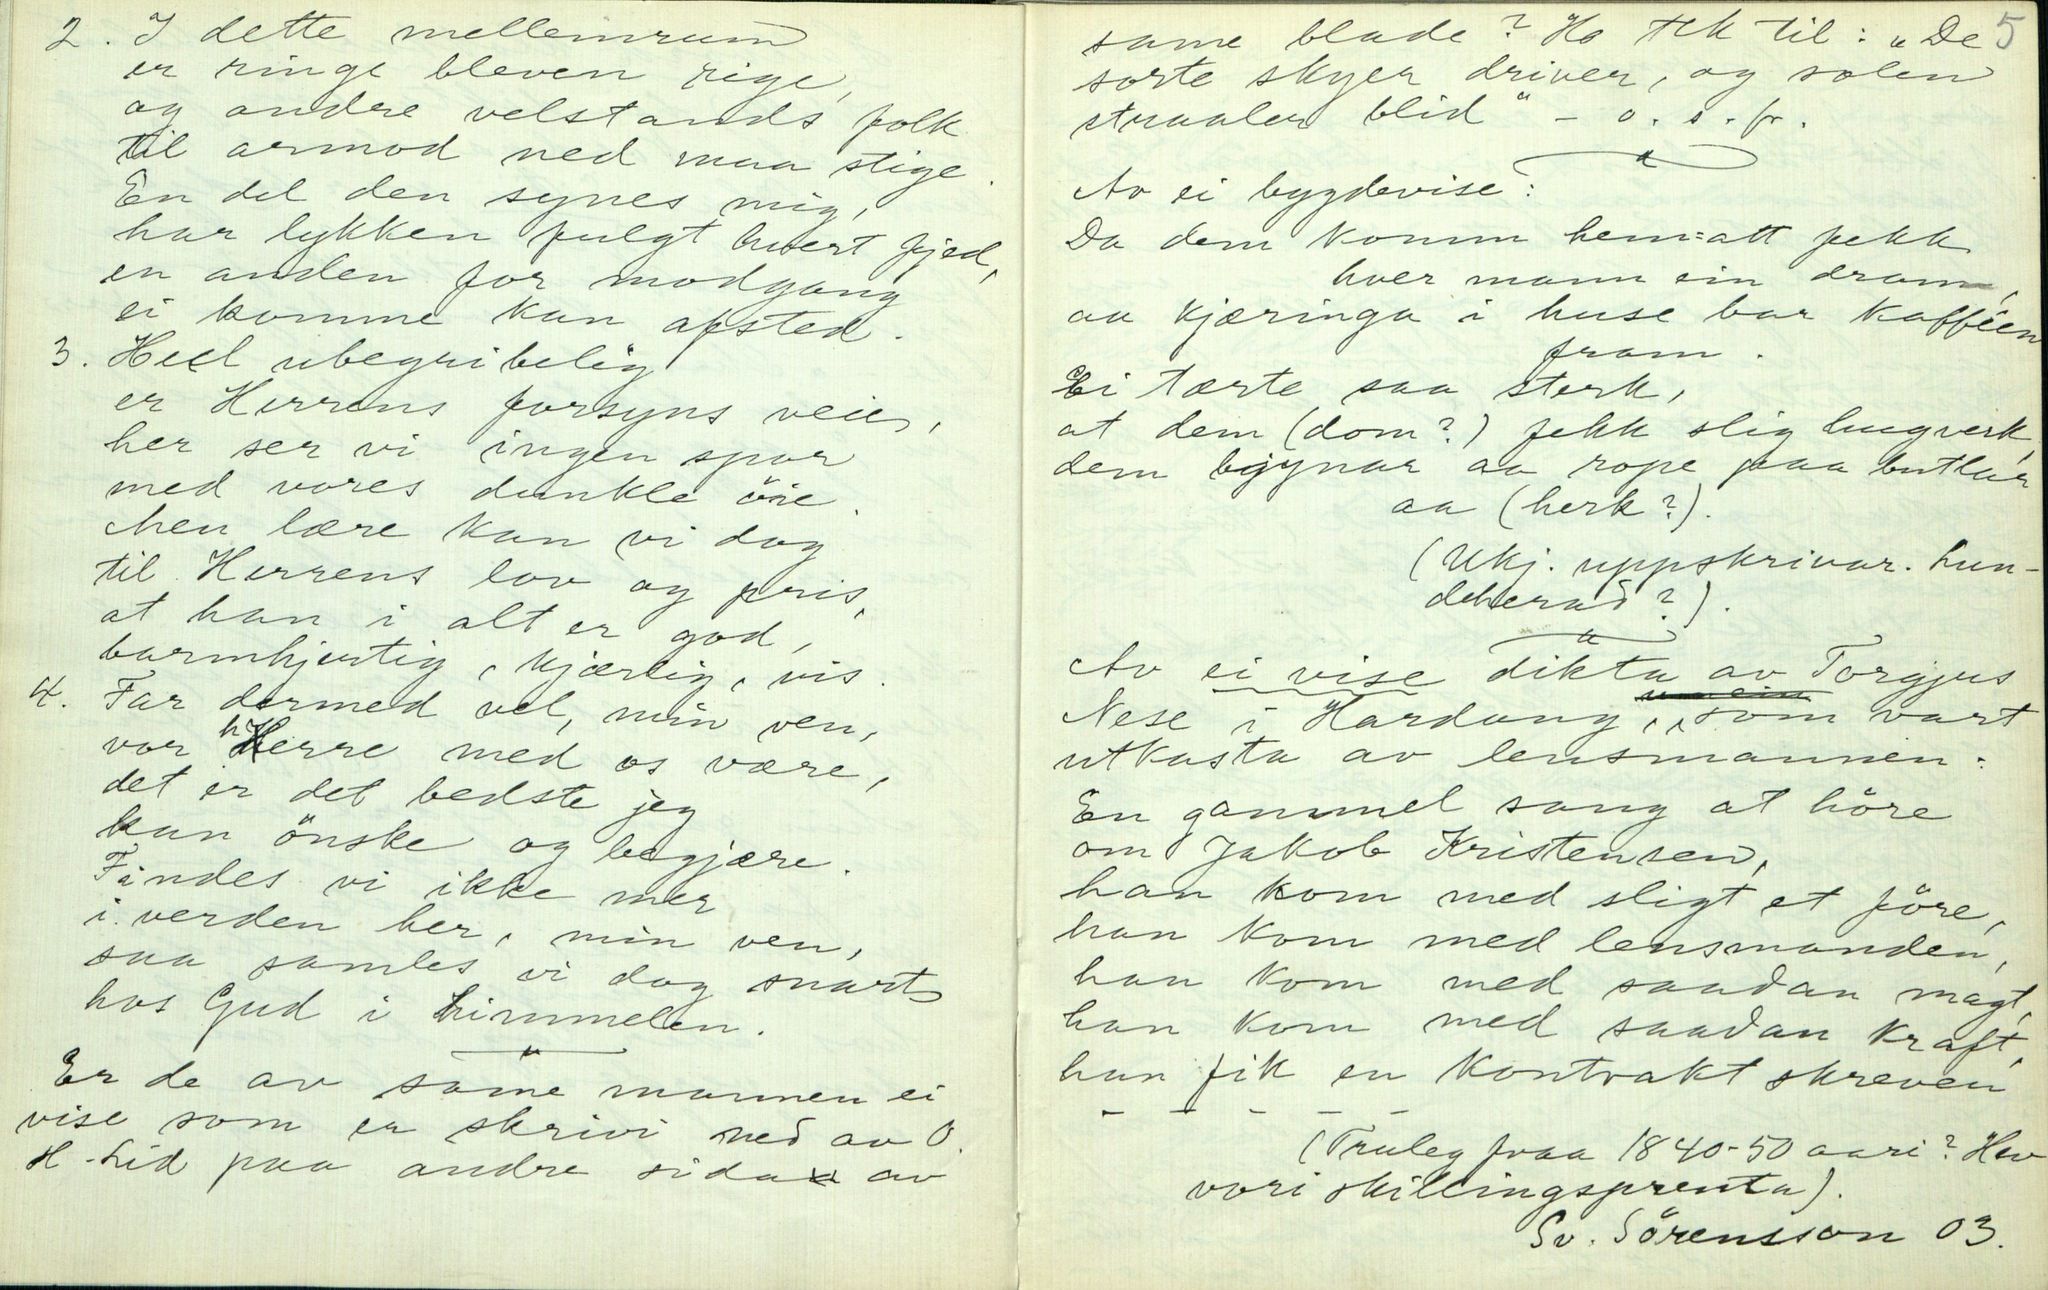 2. I dette mellemrum
er ringe bleven rige,
og andre velstands folk
til armod ned maa stige.
En del den synes mig,
har lykken fulgt hvert fjed,
en anden for modgang
ei komme kan afsted.
3. Heel ubegribelig
er Herrens forsyns veie,
her ser vi ingen spor
med vores dunkle öie.
Men lære kan vi dog
til Herrens lov og pris,
at han i alt er god,
barmhjertig, kjærlig, vis.
4. Far dermed vel, min ven,
vor herre med os være,
det er det bedste jeg
kan önske og begjære.
Findes vi ikke mer
i verden her, min ven,
saa samles vi dog snart
hos Gud i himmelen.
Er de av same mannen ei
vise som er skrivi ned av O.
H-Lid paa andre sida av
5
same blade? Ho tek til: „De
sorte skyer driver, og solen
straaler blid" - o. s. fr.
Av ei bygdevise:
Da dem komm hem=att fekk
hver mann ein dram,
aa kjæringa i huse bar kafféen
fram.
Ei tærte saa sterk,
at dem (dom?) fekk slig hugverk,
dem bgynar aa rope paa butlar
aa (herk?).
(Ukj. uppskrivar. Lun-
deherad?).
Av ei vise dikta av Torgjus
Nese i Hardang, som vart
utkasta av lensmannen:
En gammel sang at höre
om Jakob Kristensen,
han kom med sligt et före,
han kom med lensmanden,
han kom med saadan magt,
han kom med saadan kraft,
han fik en kontrakt skreven
- - - - -
(Truleg fraa 1840-50 aari? Hev
vori skillingsprenta).
Sv. Sörensson 03.